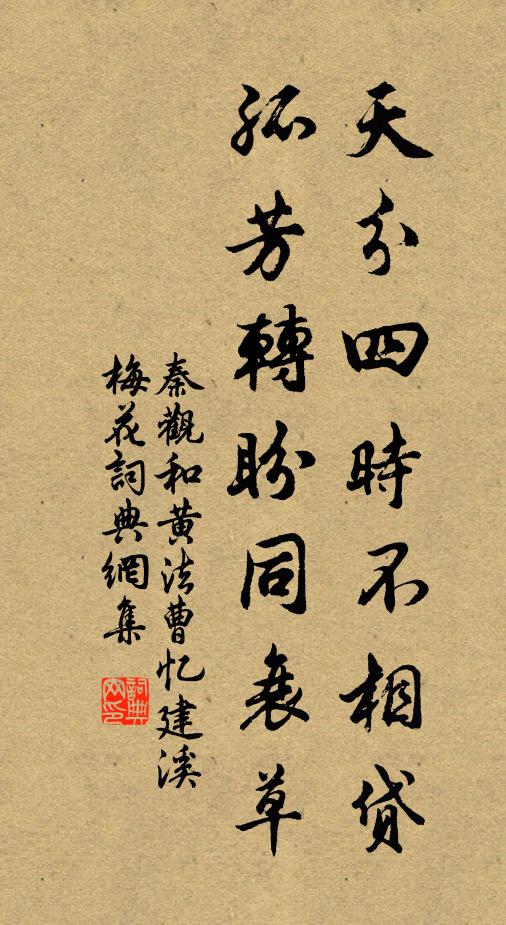 天分四時不相貸
孤芳轉盼同衰草
秦觀和黃法曹忆建溪
梅花詞典網集
詞典网印